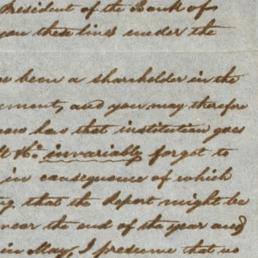 President of the Bank of
you these lines under the
been a shareholder in the
ement, and you may therefore
how has that institution goes
invariably forget to
in consequence of which
that the report might be
near the end of the year and
in May, I presume that no